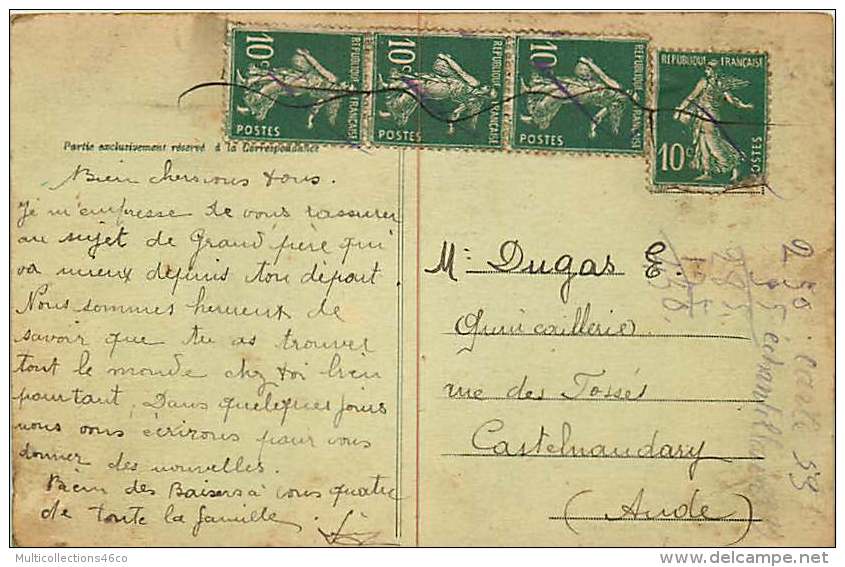 10c REPUBLIQUE FRANÇAISE POSTES
10c REPUBLIQUE FRANÇAISE POSTES
10c REPUBLIQUE FRANÇAISE POSTES
REPUBLIQUE FRANÇAISE 10c POSTES
Partie exclusivement réservée à la Correspondance
Bien chers vous tous.
Je m'empresse de vous rassurer
au sujet de Grand père qui
va mieux depuis ton départ.
Nous sommes heureux de
savoir que tu as trouver
tout le monde chez toi bien
pourtant, Dans quelques jours
nous vous écrirons pour vous
donner des nouvelles.
Bien des Baisers à vous quatre
de toute la famille
Mr Dugas E.
Quincaillerie
rue des Fossés
Castelnaudary
(Aude)
2,50 carte 59
Multicollections46co
delcampe.net